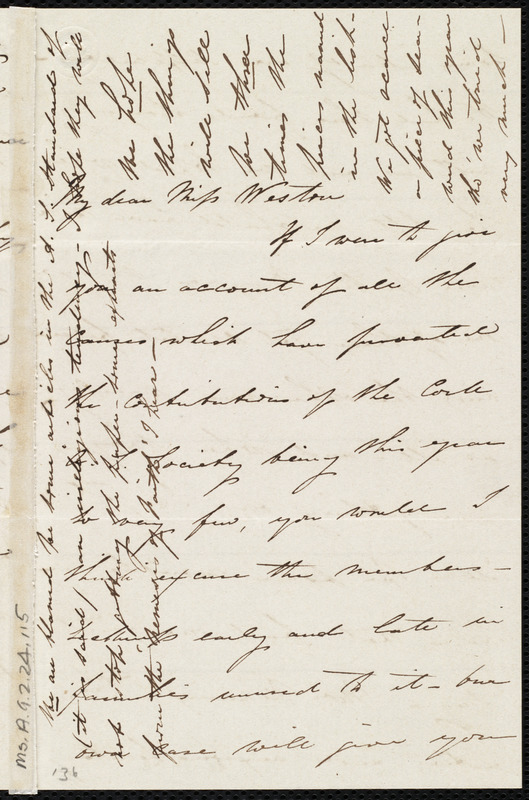 My dear Miss Weston
If I were to give
you an account of all the
causes which have prevented
the contributions of the Cork
Society being this year
so very few, you would I
think excuse the members—
Sickness early and late in
families unused to it— our
own case will give you
We hope
the things
will sell
for three
times the
prices named
in the list—
We got
a piece of
this year
tho' we tried
very much—
We are blamed for some articles in the A. S. Standard of
(it is said) an irreligious tendency— I hope they will
not stop taking the paper— some extracts
from the "Nemesis of Faith" I hear—
Ms. A.9.2.24.115
136